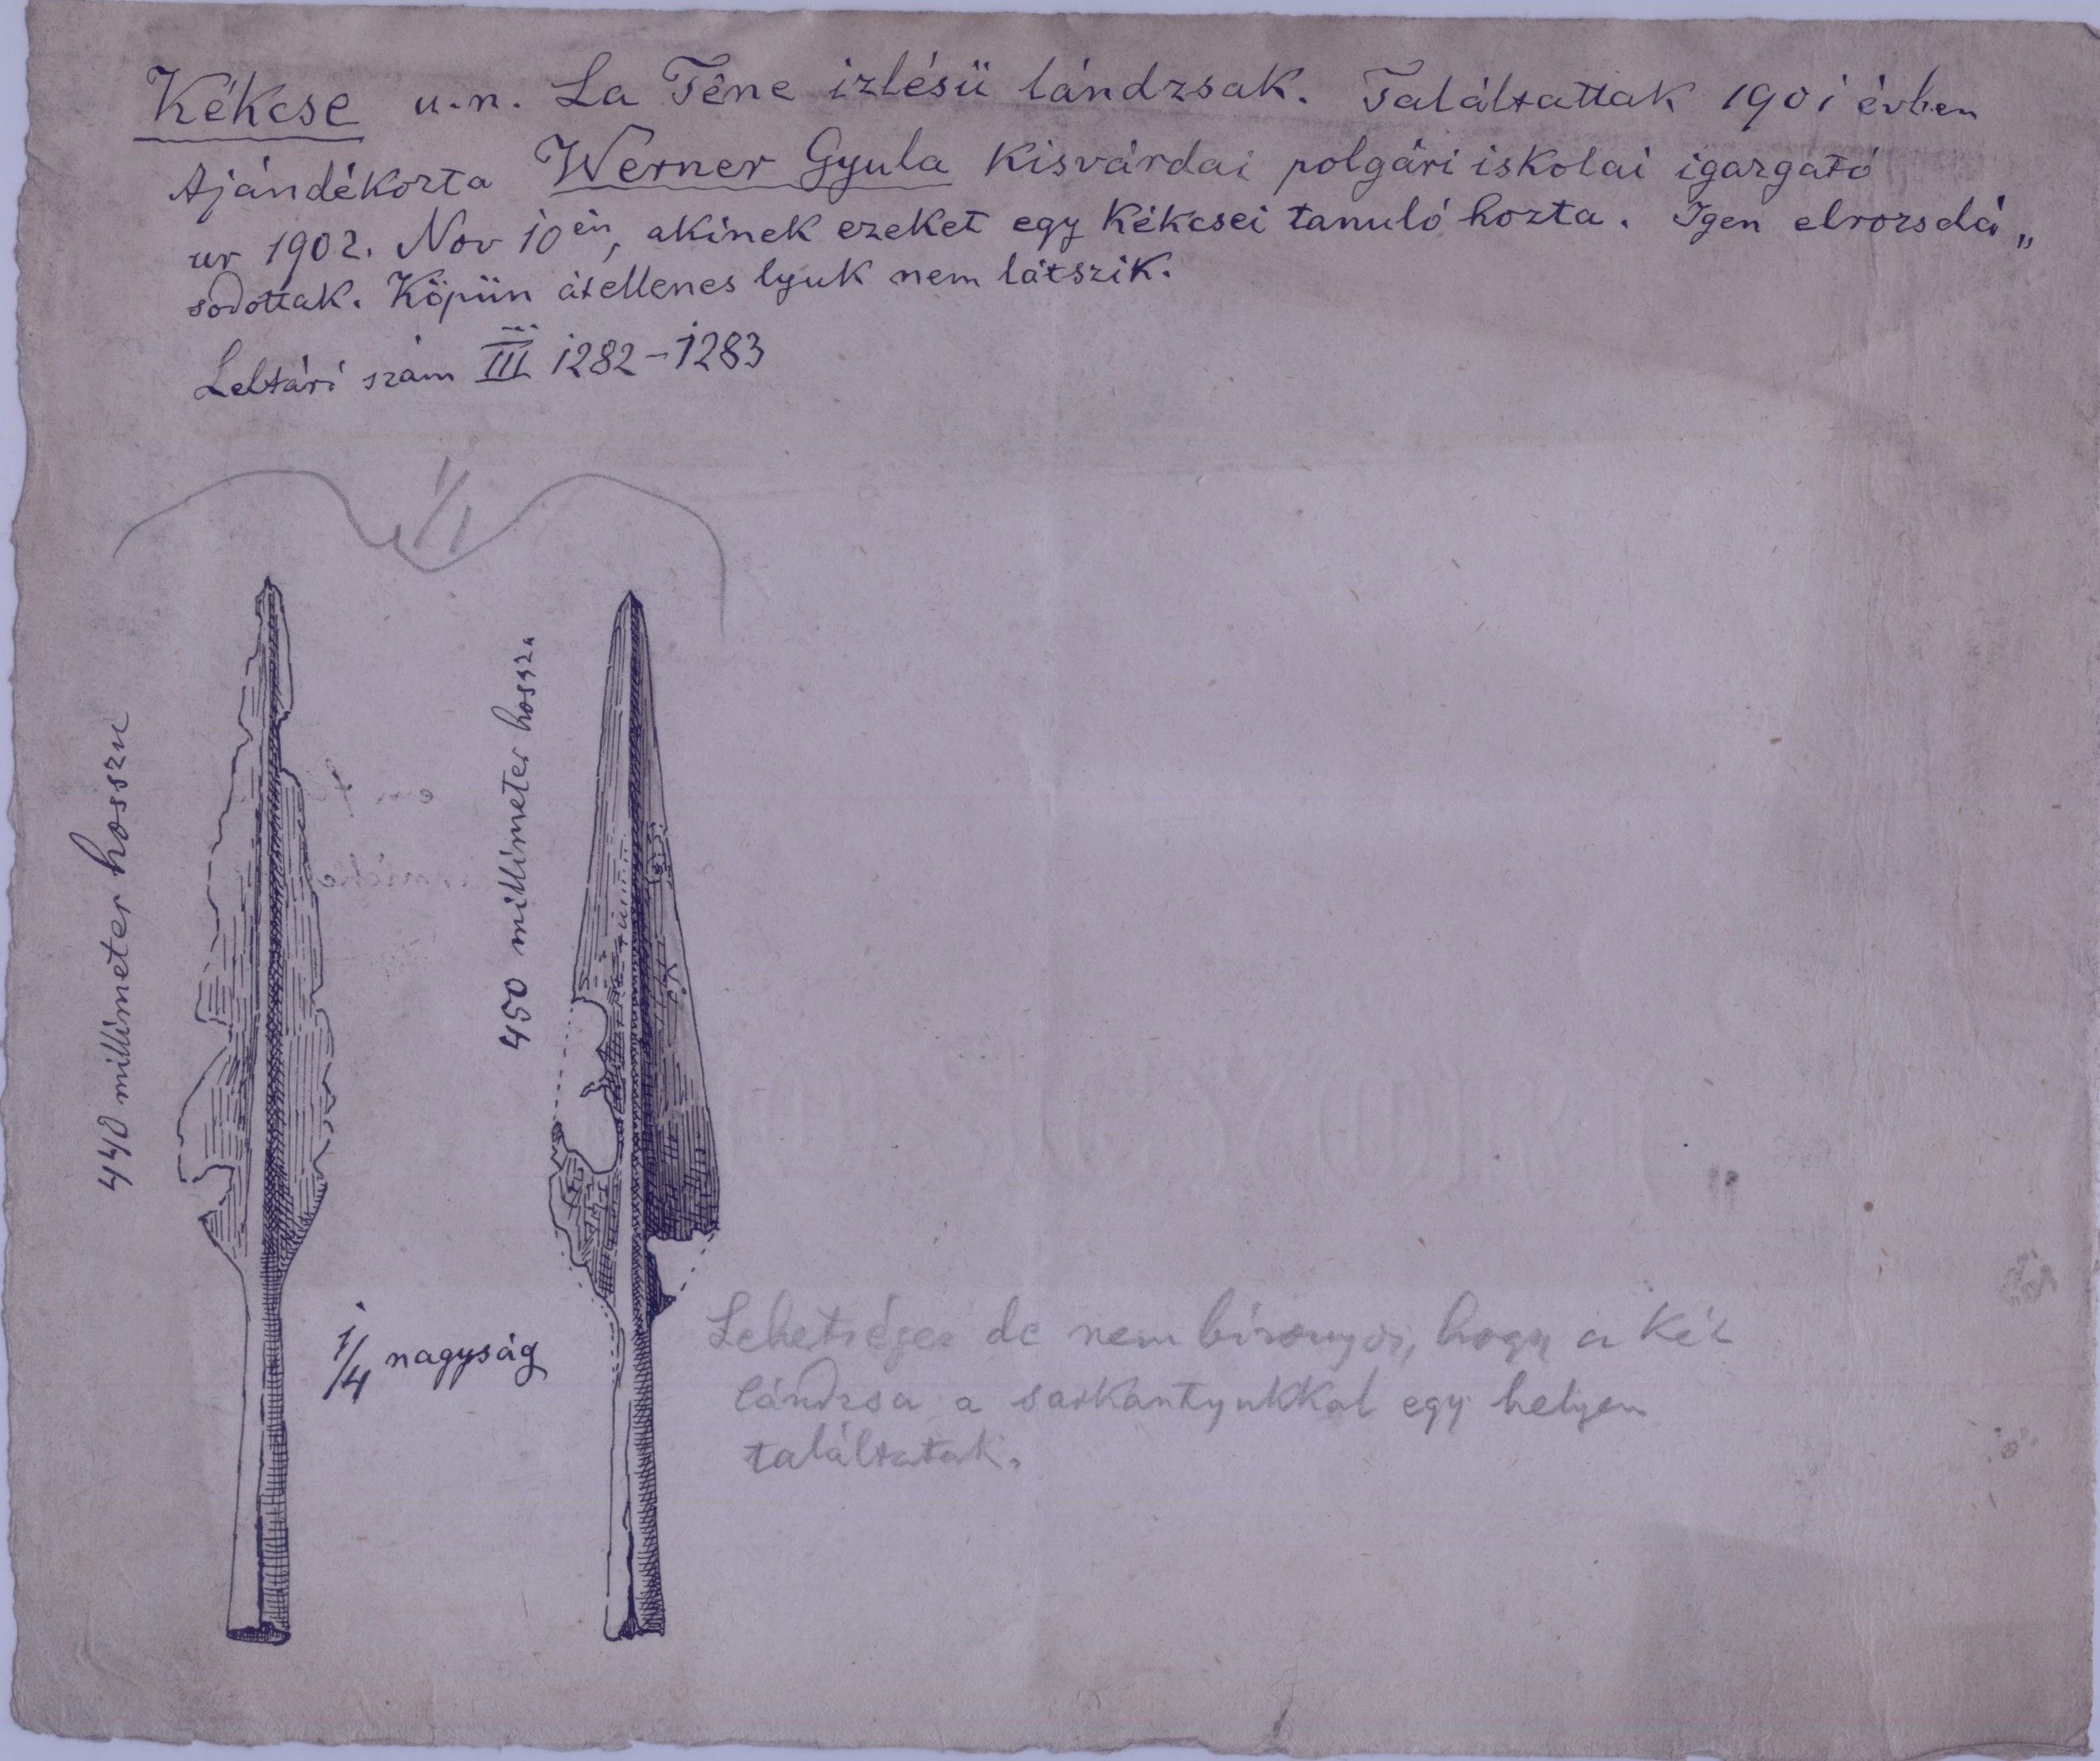 Kékcse u.n. La Téne izlésü lándzsak. Találtattak 1901 évben
Ajándékozta Werner Gyula Kisvárdai polgári iskolai igazgató
ur 1902. Nov 10én, akinek ezeket egy Kékcsei tanuló hozta. Igen elrozsdá„
sodottak. Köpün átellenes lyuk nem látszik.
Leltári szám III 1282-1283
1/1
440 millimeter hosszu
450 millimeter hossz.
1/4 nagyság
Lehetséges de nem bizonyos, hogy a két
lándzsa a sarkantyukkal egy helyen
találtatak.